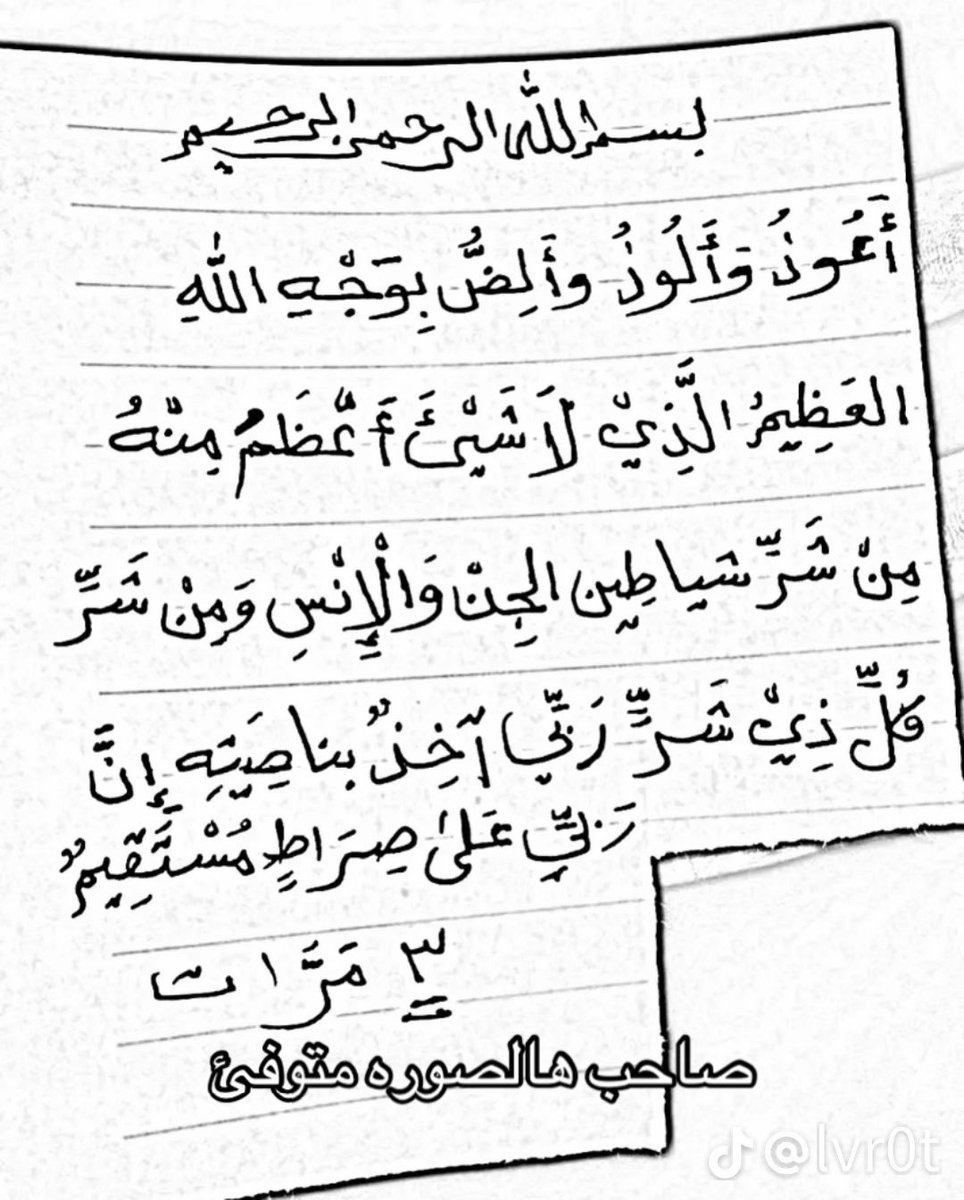 بسم الله الرحمن الرحيم
أَعُوذُ وَأَلُوذُ وأَلِضُّ بِوَجْهِ اللهِ
العَظِيمُ الَّذِيْ لَا شَيْئَ أَعْظَمُ مِنْهُ
مِنْ شَرِّ شياطِينِ الجِنْ وَالْإِنْسِ وَمِنْ شَرِّ
كُلِّ ذِيْ شَرٍّ رَبِّي آخِذٌ بناصِيَتِهِ إِنَّ
رَبِّيِ عَلىٰ صِرَاطٍ مُسْتَقِيمٌ
٣ مَرَّات
صاحب هالصوره متوفئ
@lvr0t